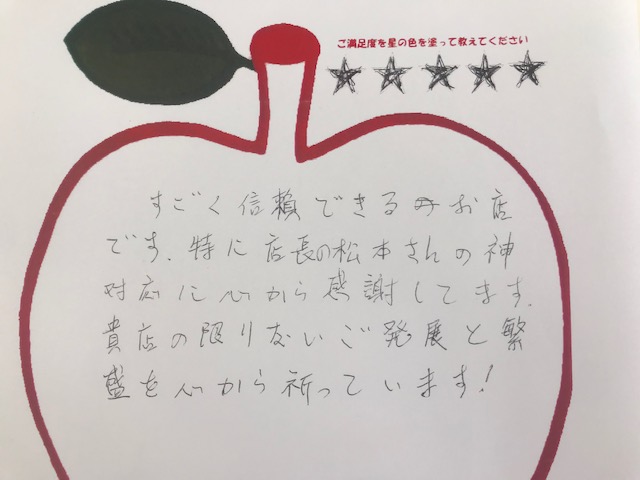 ご満足度を星の色を塗って教えてください
すごく信頼できるお店
です.特に店長の松本さんの神
対応に心から感謝してます.
貴店の限りないご発展と繁
盛を心から祈っています!